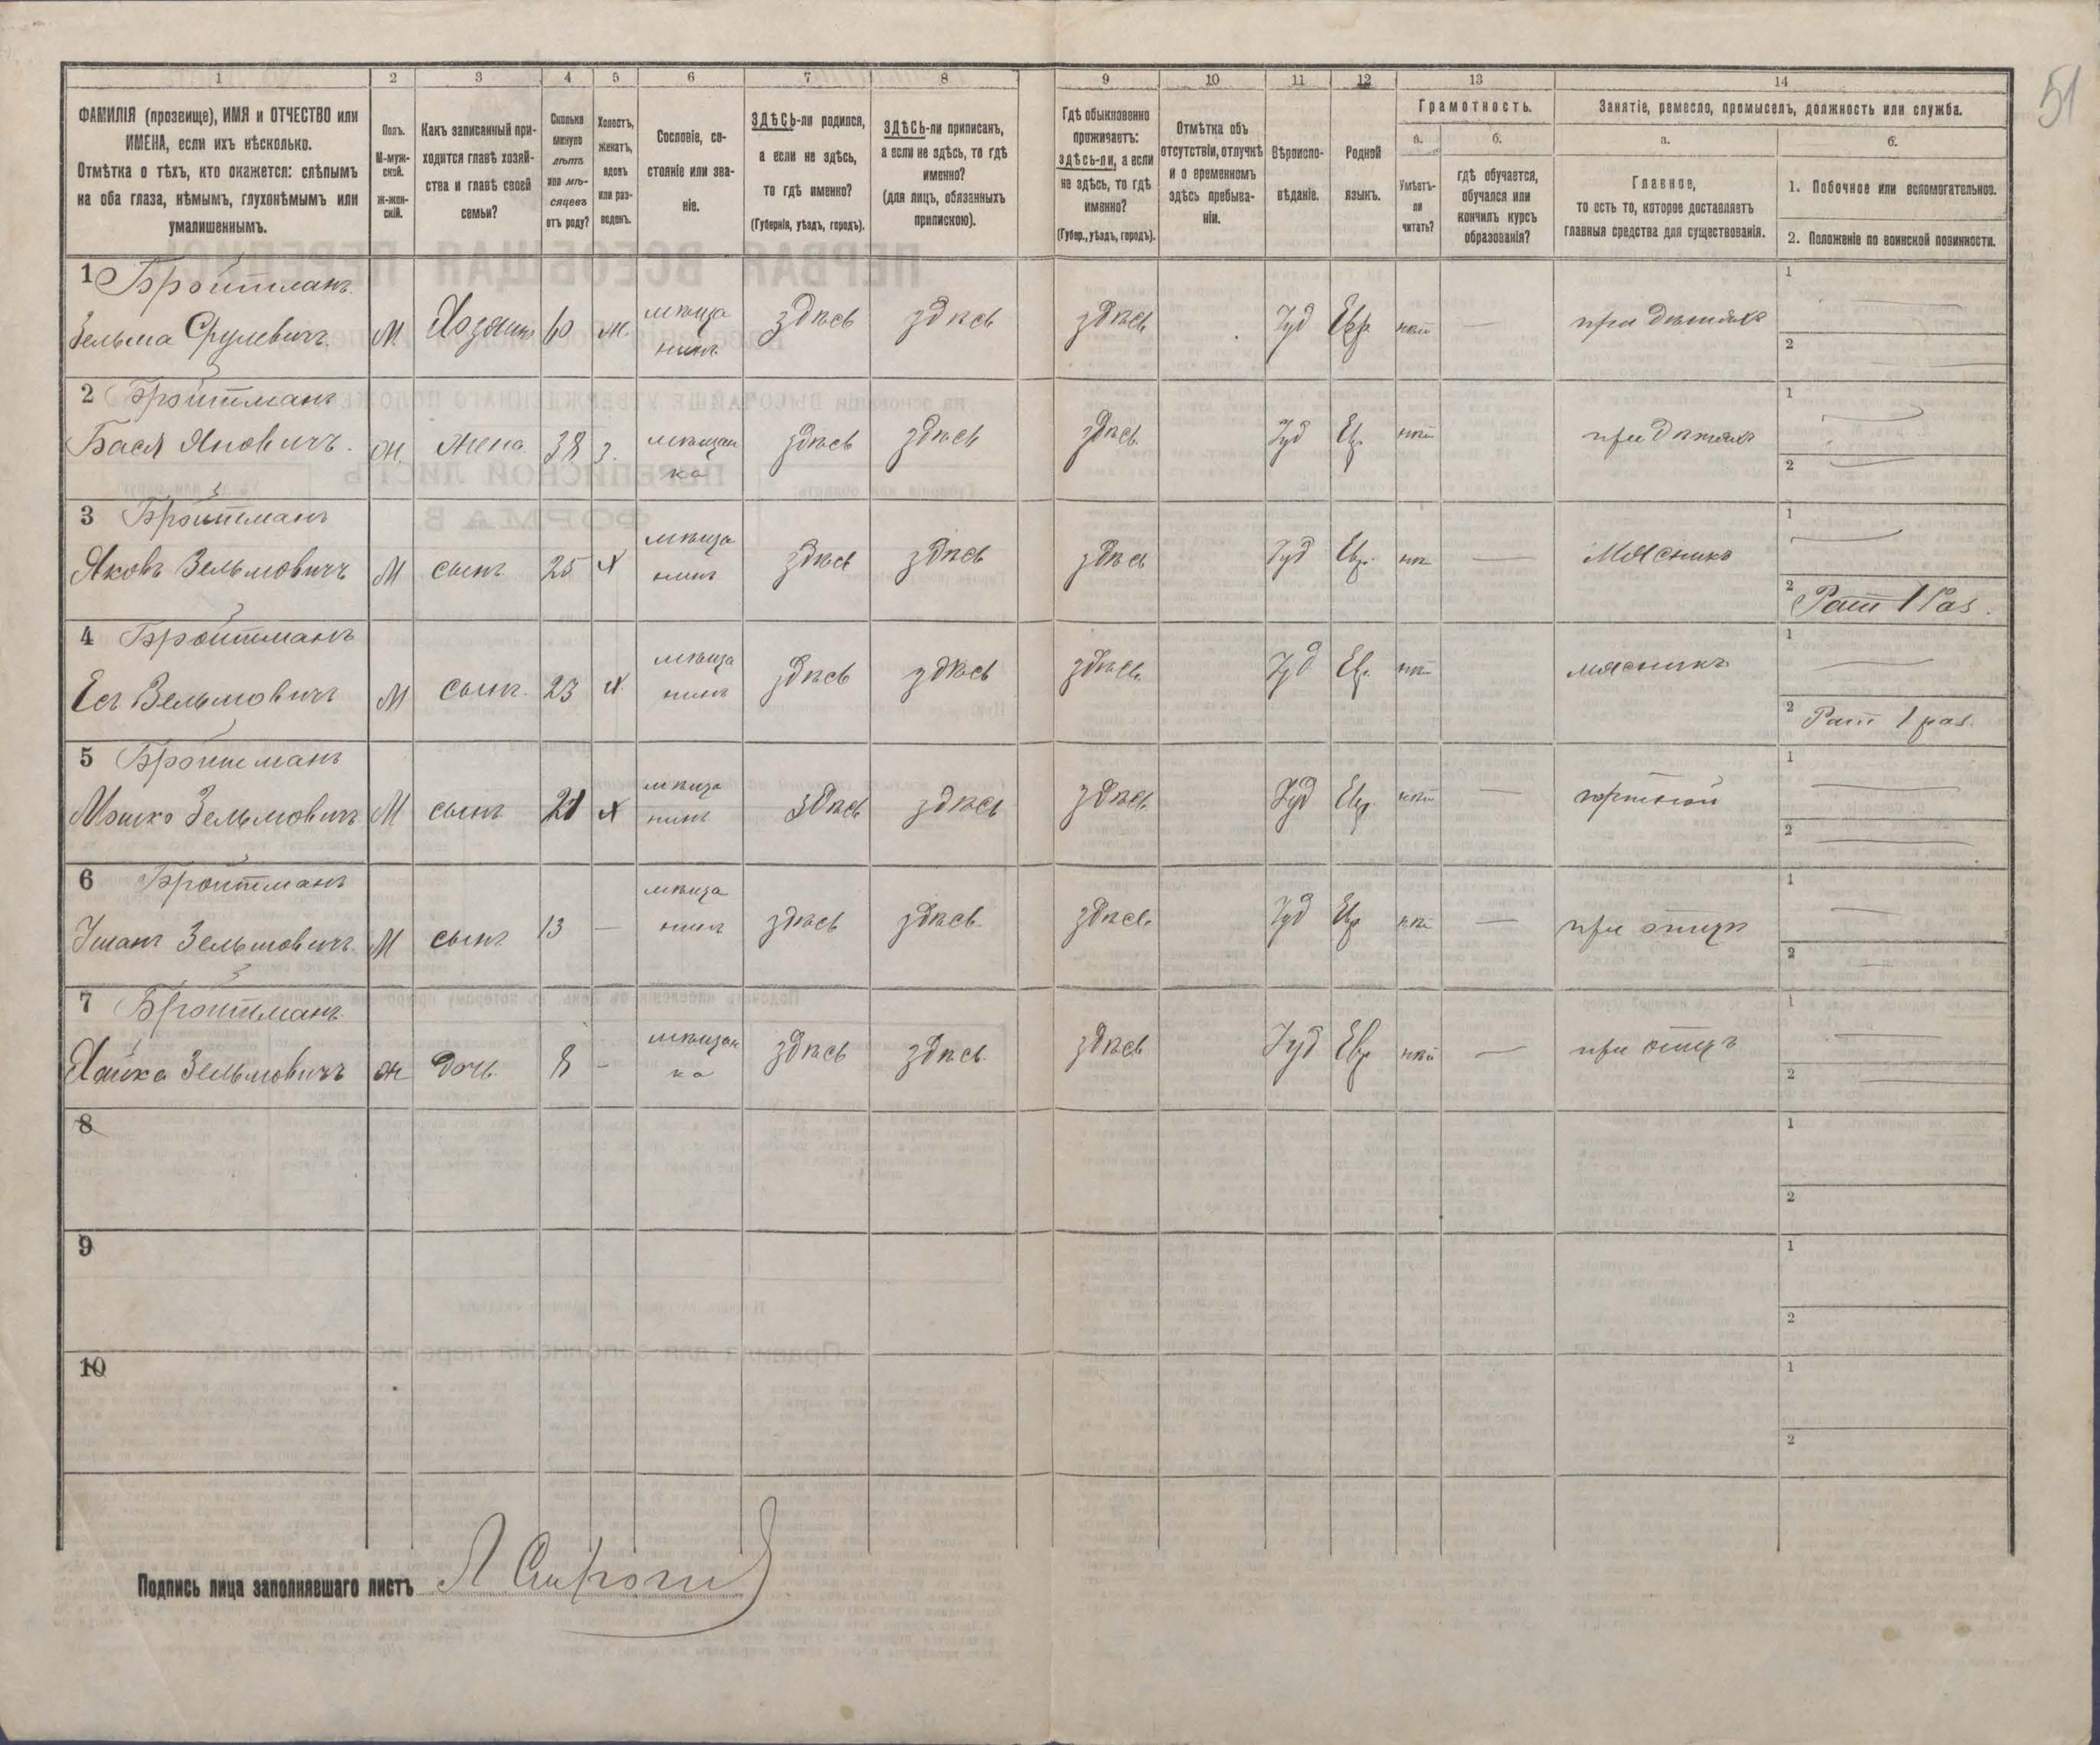 51
1 2 3 4 5 6 7 8 9 10 11 12 13 14
ФАМИЛІЯ (прозвище), ИМЯ и ОТЧЕСТВО или
ИМЕНА, если ихъ нѣсколько.
Отмѣтка о тѣхъ, кто окажется: слѣпымъ
на оба глаза, нѣмымъ, глухонѣмымъ или
умалишеннымъ.
Полъ.
М-муж-
ской.
Ж-жен-
скій.
Какъ записанный при-
ходится главѣ хозяй-
ства и главѣ своей
семьи?
Сколько
минуло
лѣтъ
или мѣ-
сяцевъ
отъ роду?
Холостъ,
женатъ,
вдовъ
или раз-
веденъ.
Сословіе, со-
стояніе или зва-
ніе.
ЗДѢСЬ-ли родился,
а если не здѣсь,
то гдѣ именно?
(Губернія, уѣздъ, городъ).
ЗДѢСЬ-ли приписанъ,
а если не здѣсь, то гдѣ
именно?
(для лицъ, обязанныхъ
припискою).
Гдѣ обыкновенно
проживаетъ:
ЗДѢСЬ-ли, а если
не здѣсь, то гдѣ
именно?
(Губер., уѣздъ, городъ).
Отмѣтка объ
отсутствіи, отлучкѣ
и о временномъ
здѣсь пребыва-
ніи.
Вѣроиспо-
вѣданіе.
Родной
языкъ.
Грамотность.
а.
Умѣетъ-
ли
читать?
б.
гдѣ обучается,
обучался или
кончилъ курсъ
образованія?
Занятіе, ремесло, промыселъ, должность или служба.
а.
Главное,
то есть то, которое доставляетъ
главныя средства для существованія.
б.
1. Побочное или вспомогательное.
2. Положеніе по воинской повинности.
1 Бройтманъ
Зельма Срулевичъ М. Хозяинъ 60 ж. мѣща
нинъ здѣсь здѣсь здѣсь Іуд Евр. нѣт — при дѣтяхъ 1 — 2 —
2 Бройтманъ
Бася Яновичъ. Ж. жена 38 з. мѣщан
ка здѣсь здѣсь здѣсь Іуд Ев. нѣт при дѣтяхъ 1 — 2 —
3 Бройтманъ
Яковъ Зельмовичъ М сынъ 25 х мѣща
нинъ здѣсь здѣсь здѣсь Іуд Евр. нѣт — Мясникъ 1 — 2 Рат 1 Раз.
4 Бройтманъ
Зельмовичъ М сынъ. 23 х. мѣща
нинъ здѣсь здѣсь здѣсь Іуд Ев. нѣт мясникъ 1 — 2 Рат 1 раз.
5 Бройтманъ
Мошко Зельмовичъ М сынъ 21 х мѣща
нинъ здѣсь здѣсь здѣсь Іуд Евр. нѣт — портной 1 — 2 —
6 Бройтманъ
Зельмовичъ М сынъ 13 — мѣща
нинъ здѣсь здѣсь здѣсь Іуд Евр нѣт — при отцѣ 1 — 2 —
7 Бройтманъ
Хайка Зельмовичъ ж дочь. 8 - мѣщан
ка здѣсь здѣсь здѣсь Іуд Евр нѣт — при отцѣ 1 — 2 —
8 1 2
9 1 2
10 1 2
Подпись лица заполнявшаго листъ